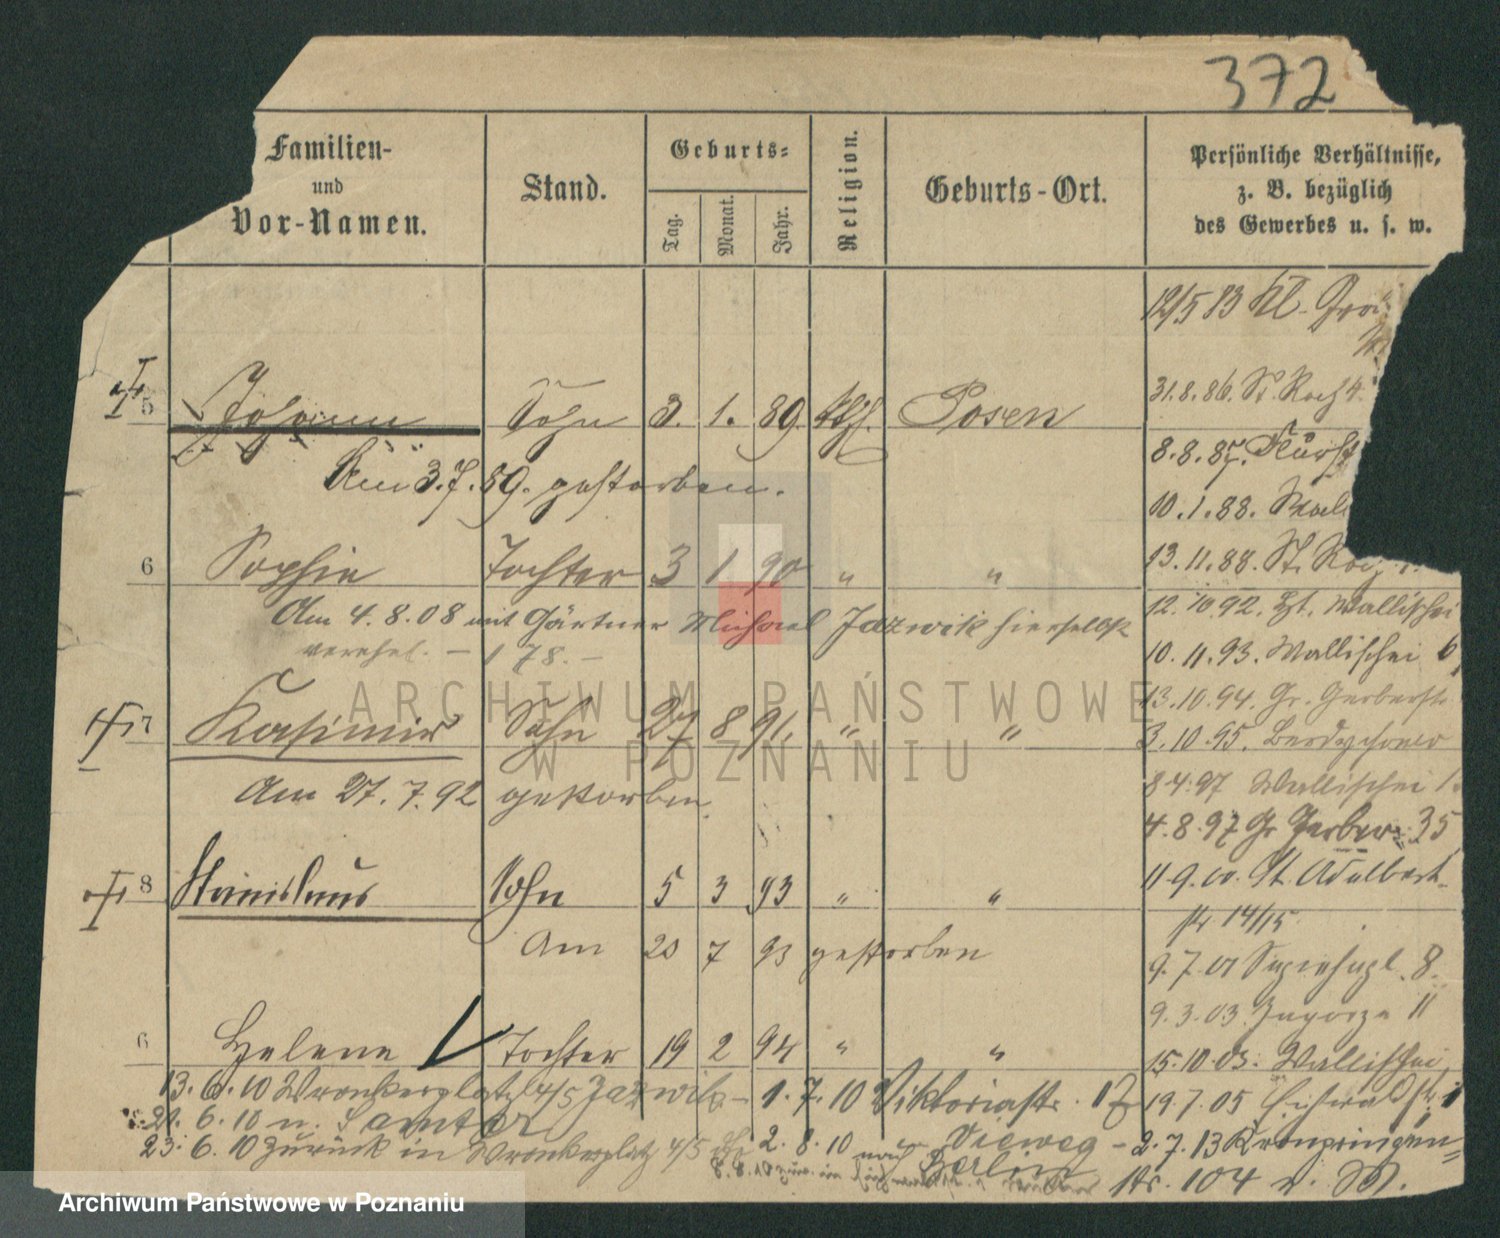 372
Familien- und Vor-Namen.
Stand.
Geburts-
Tag.
Monat.
Jahr.
Religion.
Geburts-Ort.
Persönliche Verhältnisse,
z. B. bezüglich
des Gewerbes u. s. w.
12/5 83 Kl.
31.8.86. St. Roch 4.
5 Johann Sohn 3. 1. 89. kth. Posen
8.8.87.
Am 3.7.89. gestorben.
10.1.88.
6 Sophie Tochter 3 1 90 " "
13.11.88. St. Roch
Am 4.8.08 mit Gärtner Michael Jazwik hierselbst
12.10.92. Wallischei
verehel. – 178. –
10.11.93. Wallischei 6
13.10.94. Gr. Gerberstr.
7 Kasimir Sohn 27 8 91. " "
3.10.95.
Am 27.7.92 gestorben.
8.4.97 Wallischei
4.8.97 Gr. Gerber 35
8 Stanislaus Sohn 5 3 93 " "
11.9.00. St. Adalbert-
str 14/15.
Am 20 7 93 gestorben
9.7.01 Sapiehapl. 8.
9.3.03. Zagorze 11
6 Helene Tochter 19 2 94 " "
15.10.03. Wallischei
13.6.10 Wronkerplatz 4/5 Jazwik – 1.7.10 Viktoriastr. 17
19.7.05
21.6.10 n. Samter
23.6.10 Zurück in Wronkerplatz 4/5 2.8.10 nach Berlin
2.7.13 Kronprinzen-
str. 104
ARCHIWUM PAŃSTWOWE
W POZNANIU
Archiwum Państwowe w Poznaniu